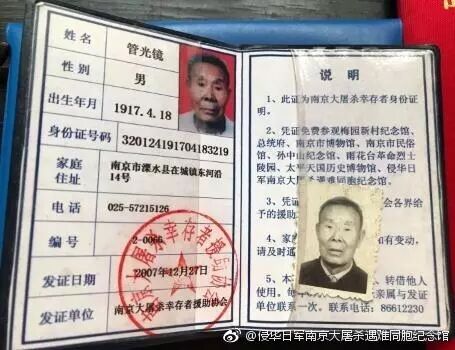 姓名 管光镜
性别 男
出生年月 1917.4.18
身份证号码 320124191704183219
家庭 南京市溧水县在城镇东河沿
住址 14号
电话 025-57215126
编号 2-0066
发证日期 2007年12月27日
发证单位 南京大屠杀幸存者援助协会
南京大屠杀幸存者援助协会
说明
1、此证为南京大屠杀幸存者身份证
明。
2、凭证免费参观梅园新村纪念馆、
总统府、南京市博物馆、南京市民俗
馆、孙中山纪念馆、雨花台革命烈士
陵园、太平天国历史博物馆、侵华日
军南京大屠杀遇难同胞纪念馆。
3、凭证 会各界给
予的援助
4、家庭 有变动，
请及时通
5、本 转借他人
使用。 亲属与发证
单位联系一次。联系电话：86612230
@侵华日军南京大屠杀遇难同胞纪念馆